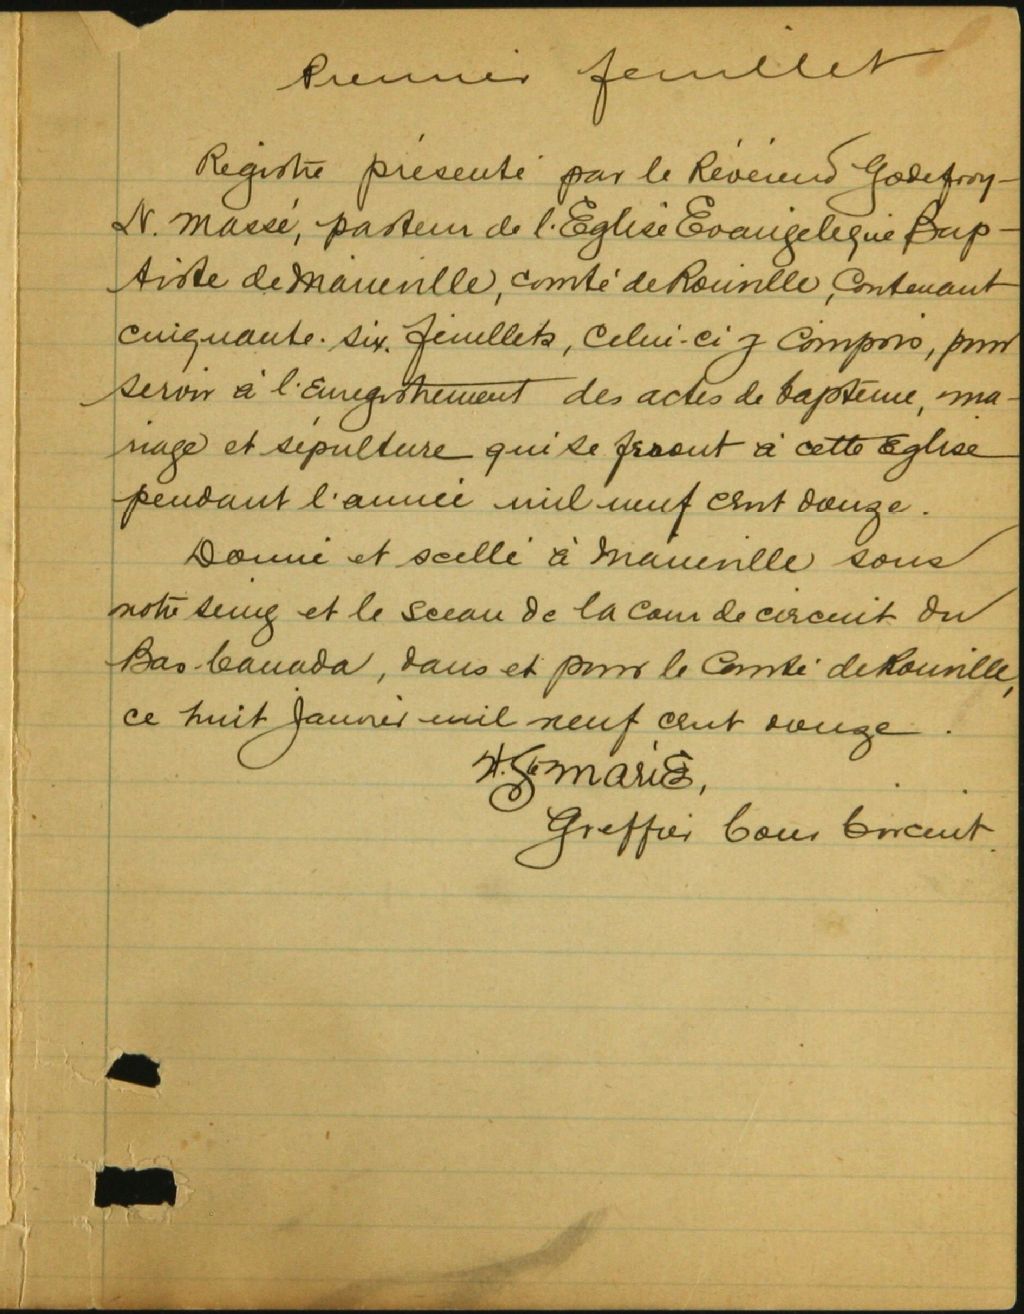 Premier feuillet
Registre présenté par le Révérend Godefroy-
N. Massé, pasteur de l'Eglise Evangelique Bap-
tiste de Marieville, comté de Rouville, contenant
cinquante-six feuillets, celui-ci y compris, pour
servir à l'Enregistrement des actes de baptême, ma-
riage et sépulture qui se feront à cette Eglise
pendant l'année mil neuf cent douze.
Donné et scellé à Marieville sous
notre seing et le sceau de la Cour de circuit du
Bas-Canada, dans et pour le Comté de Rouville,
ce huit Janvier mil neuf cent douze.
Ste Marie,
Greffier Cour Circuit.